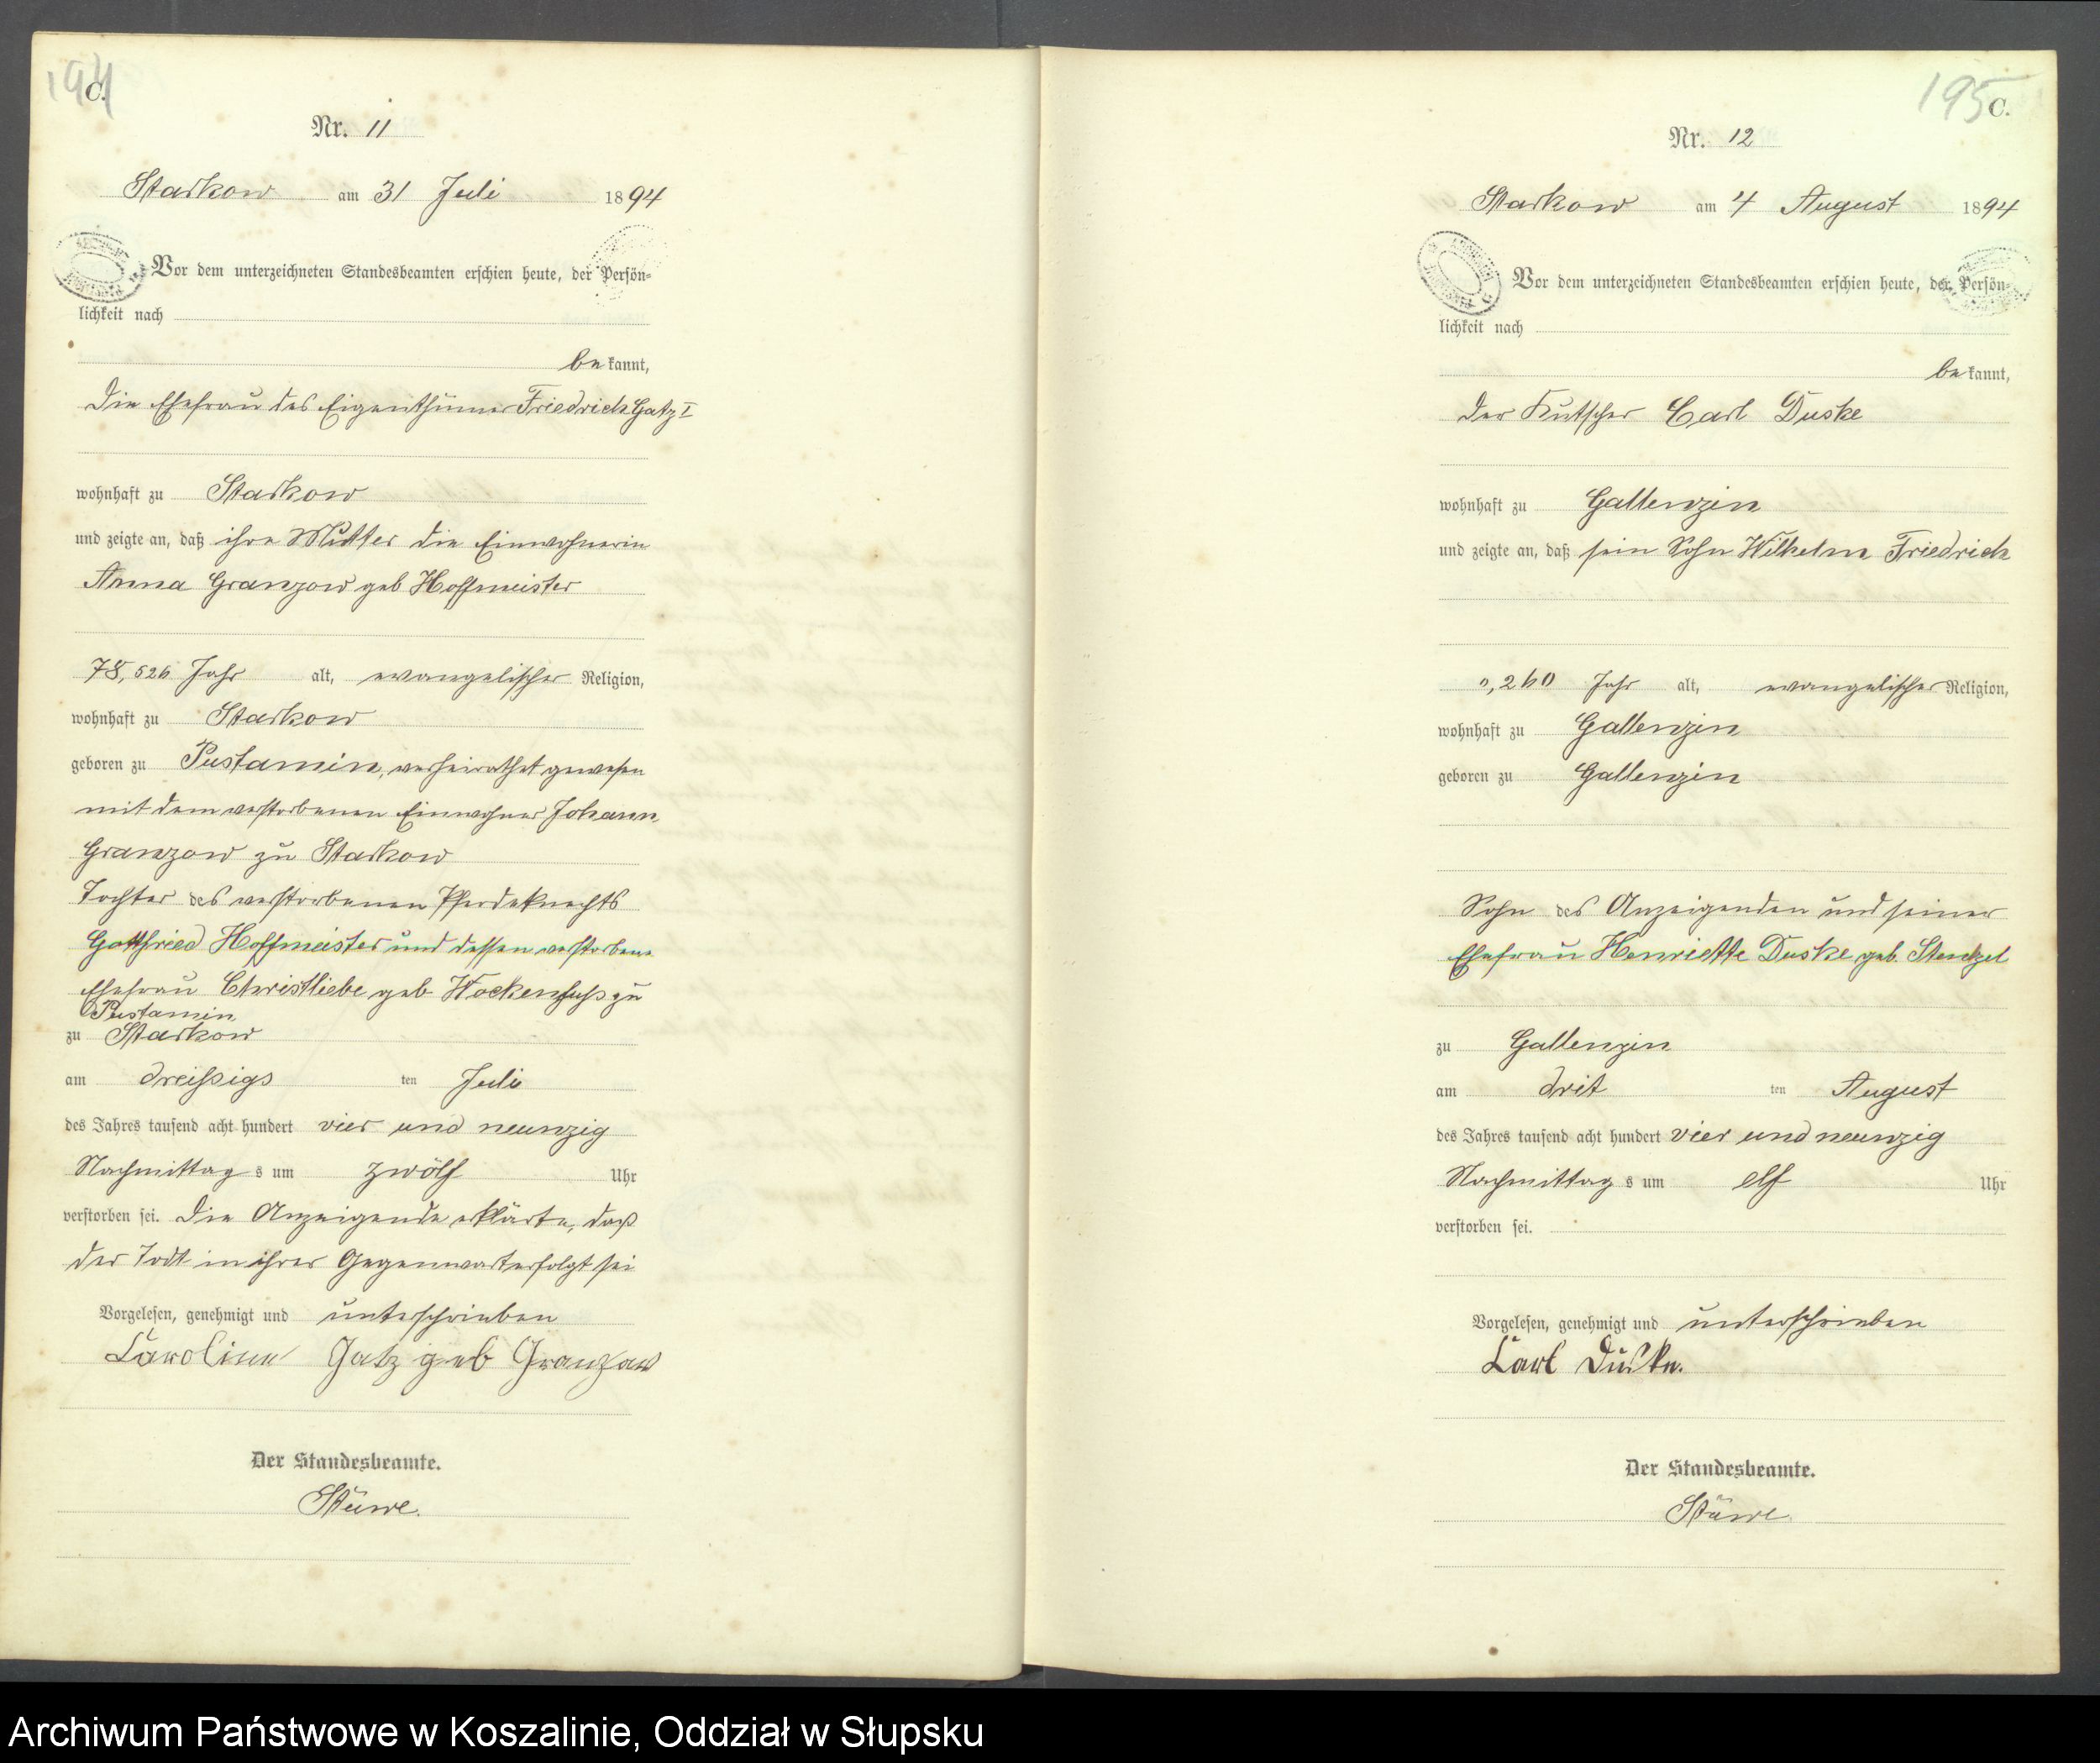 194
C.
Nr. 11
Starkow am 31 Juli 1894
Vor dem unterzeichneten Standesbeamten erschien heute, der Persön-
lichkeit nach
bekannt,
die Ehefrau des Eigenthümer Friedrich Gatz I
wohnhaft zu Starkow
und zeigte an, daß ihre Mutter die Einwohnerin
Anna Granzow geb Hoffmeister
78,526 Jahr alt, evangelischer Religion,
wohnhaft zu Starkow
geboren zu Pustamin, verheirathet gewesen
mit dem verstorbenen Einwohner Johann
Granzow zu Starkow
Tochter des verstorbenen Pferdeknechts
Gottfried Hoffmeister und dessen verstorbene
Ehefrau Christliebe geb Wockenfuß zu
Pustamin
zu Starkow
am dreißigsten Juli
des Jahres tausend acht hundert vier und neunzig
Nachmittags um zwölf Uhr
verstorben sei. Die Anzeigende erklärte, daß
der Todt in ihrer Gegenwart erfolgt sei
Vorgelesen, genehmigt und unterschrieben
Caroline Gatz geb Granzow
Der Standesbeamte.
Stüwe.
195
C.
Nr. 12
Starkow am 4 August 1894
Vor dem unterzeichneten Standesbeamten erschien heute, der Persön-
lichkeit nach
bekannt,
der Kutscher Carl Duske
wohnhaft zu Gallenzin
und zeigte an, daß sein Sohn Wilhelm Friedrich
0,260 Jahr alt, evangelischer Religion,
wohnhaft zu Gallenzin
geboren zu Gallenzin
Sohn des Anzeigenden und seiner
Ehefrau Henriette Duske geb. Stenzel
zu Gallenzin
am dritten August
des Jahres tausend acht hundert vier und neunzig
Nachmittags um elf Uhr
verstorben sei.
Vorgelesen, genehmigt und unterschrieben
Carl Duske.
Der Standesbeamte.
Stüwe.
Archiwum Państwowe w Koszalinie, Oddział w Słupsku